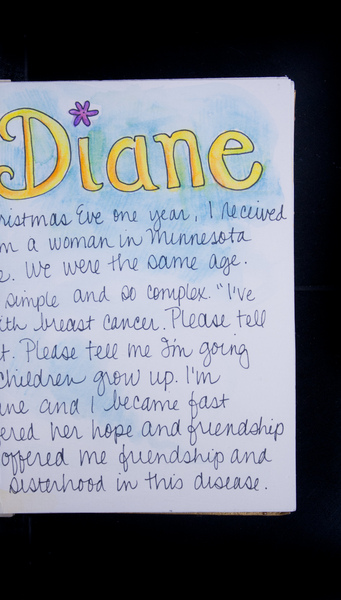 Diane
ristmas Eve one year, I received
m a woman in Minnesota
e. We were the same age.
simple and so complex. "I've
ith breast cancer. Please tell
t. Please tell me I'm going
children grow up. I'm
ane and I became fast
ered her hope and friendship
offered me friendship and
sisterhood in this disease.